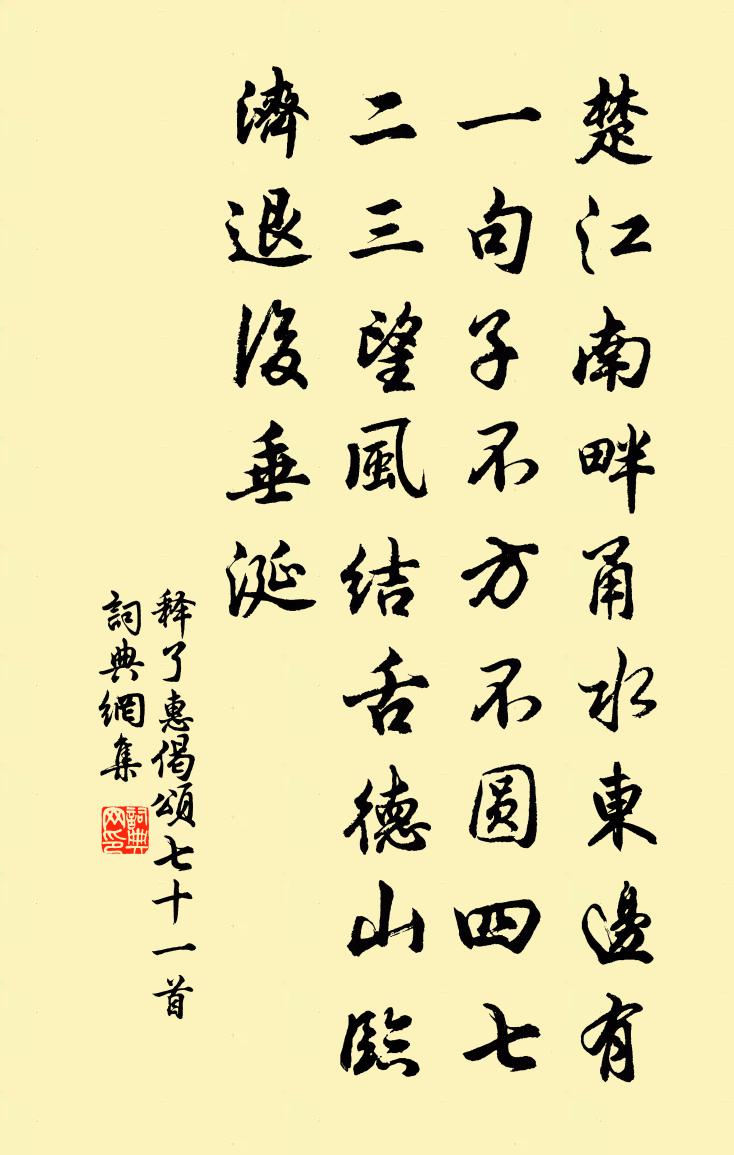 楚江南畔甬水東邊有
一句子不方不圓四七
二三望風結舌德山臨
濟退後垂涎
释了惠偈頌七十一首
詞典網集
詞典网印